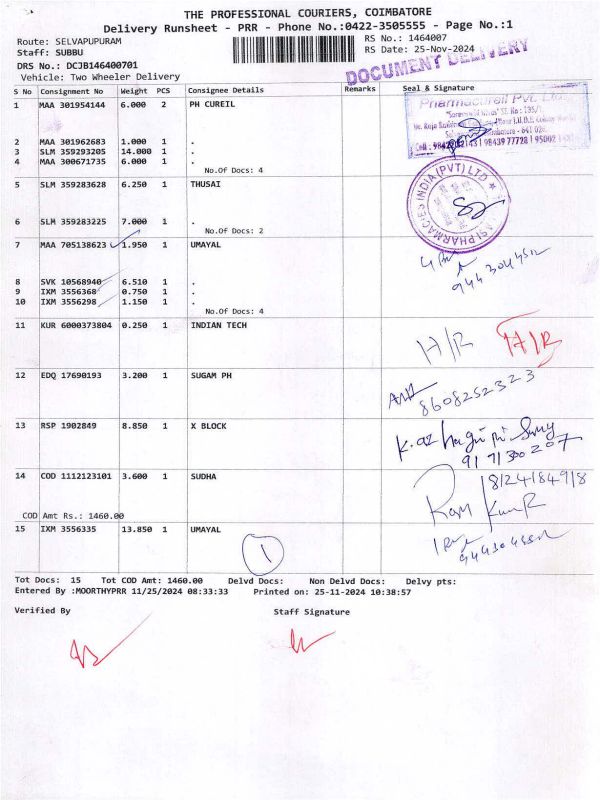 THE PROFESSIONAL COURIERS, COIMBATORE
Delivery Runsheet - PRR - Phone No.:0422-3505555 - Page No.:1
Route: SELVAPUPURAM
RS No.: 1464007
Staff: SUBBU
RS Date: 25-Nov-2024
DRS No.: DCJB146400701
DOCUMENT DELIVERY
Vehicle: Two Wheeler Delivery
S No Consignment No Weight PCS Consignee Details Remarks Seal & Signature
1 MAA 301954144 6.000 2 PH CUREIL
Pharmacureil Pvt. Ltd.
2 MAA 301962683 1.000 1 .
3 SLM 359293205 14.000 1 .
4 MAA 300671735 6.000 1 .
No.Of Docs: 4
5 SLM 359283628 6.250 1 THUSAI
PHARMACIES INDIA (PVT) LTD
6 SLM 359283225 7.000 1 .
No.Of Docs: 2
7 MAA 705138623 1.950 1 UMAYAL
8 SVK 10568940 6.510 1 .
9 IXM 3556368 0.750 1 .
10 IXM 3556298 1.150 1 .
No.Of Docs: 4
11 KUR 6000373804 0.250 1 INDIAN TECH
H/R H/R
12 EDQ 17690193 3.200 1 SUGAM PH
8608252323
13 RSP 1902849 8.850 1 X BLOCK
14 COD 1112123101 3.600 1 SUDHA
8124184918
Ram Kumar
COD Amt Rs.: 1460.00
15 IXM 3556335 13.850 1 UMAYAL
1
Tot Docs: 15 Tot COD Amt: 1460.00 Delvd Docs: Non Delvd Docs: Delvy pts:
Entered By :MOORTHYPRR 11/25/2024 08:33:33 Printed on: 25-11-2024 10:38:57
Verified By Staff Signature